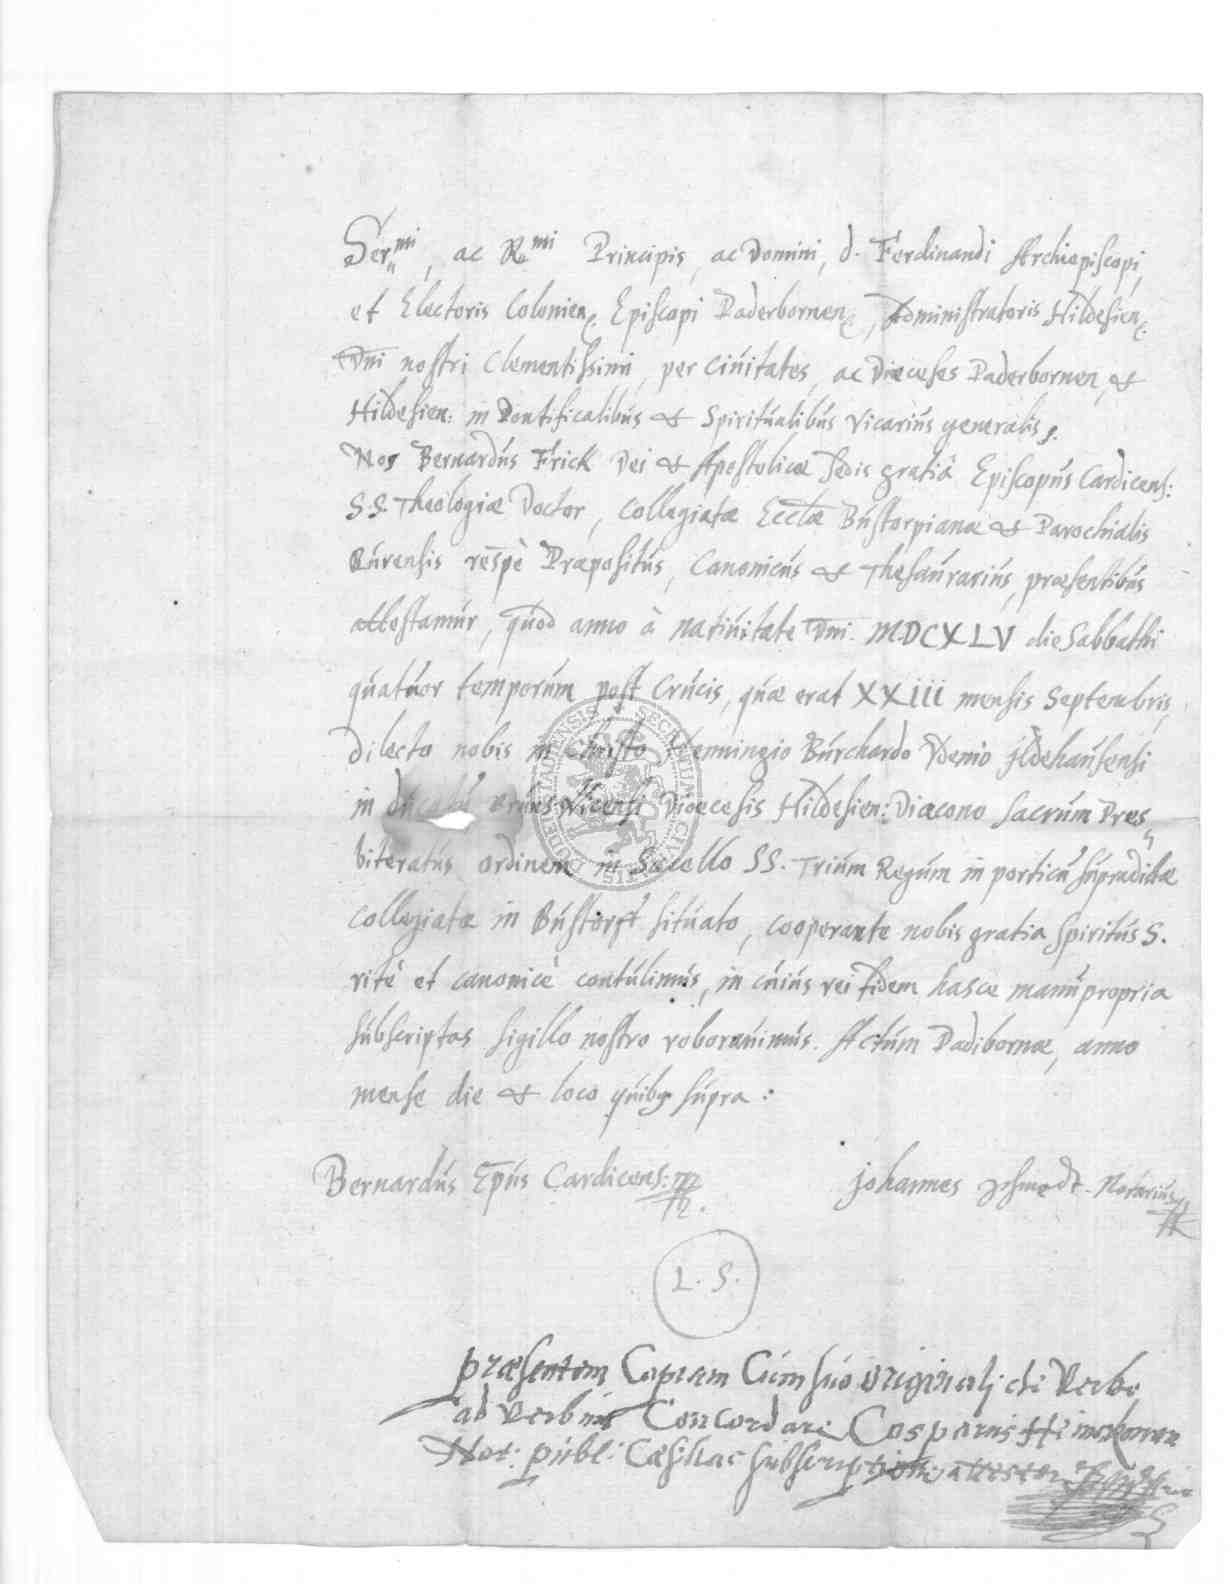 Ser.mi, ac R.mi Principis, ac Domini, d. Ferdinandi Archiepiscopi,
et Electoris Colonien. Episcopi Paderbornen, Administratoris Hildesien.
Dni nostri Clementissimi, per Civitates, ac Dioeceses Paderbornen, &
Hildesien: in Pontificalibus & Spiritualibus Vicarius generalis.
Nos Bernardus Frick Dei & Apostolicæ Sedis gratiâ Episcopus Cardicens:
SS. Theologiæ Doctor, Collegiatæ Eccłæ Bustorpianæ & Parochialis
Burensis respè Præpositus, Canonicus & Thesaurarius, præsentibus
attestamur, quod anno à nativitate Dni. MDCXLV die Sabbathi
quatuor temporum post Crucis, quæ erat XXiii mensis Septembris,
dilecto nobis in Christo Henningio Burchardo Udenio jldehausensi
in ducatu Brunsvicensi Dioecesis Hildesien: Diacono sacrum Pres„
biteratus ordinem in Sacello SS. Trium Regum in porticu supradictæ
Collegiatæ in Bustorff situato, cooperante nobis gratia Spiritus S.
ritè et canonicè contulimus, in cuius rei fidem hasce manu propria
subscriptas sigillo nostro roboravimus. Actum Padibornæ, anno
mense die & loco quibq supra:
Bernardus Epus Cardicens: mp
Johannes Notarius
L. S.
præsentem Copiam Cum suo originali de Verbo
ad Verbum Concordare Casparus
Not: publ: Cæsareus subscriptione attestor
SECRETUM CIVITATIS